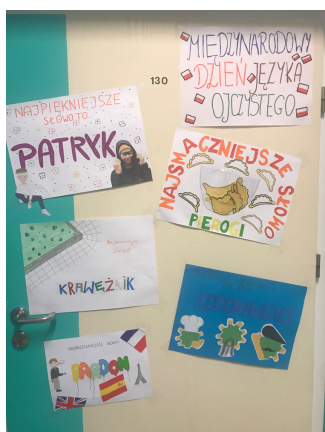 MIĘDZYNARODOWY
DZIEŃ JĘZYKA
OJCZYSTEGO
130
NAJPIĘKNIEJSZE
SŁOWO TO
PATRYK
NAJSMACZNIEJSZE SŁOWO
PIEROGI
KRAWĘŻNIK
PARDON